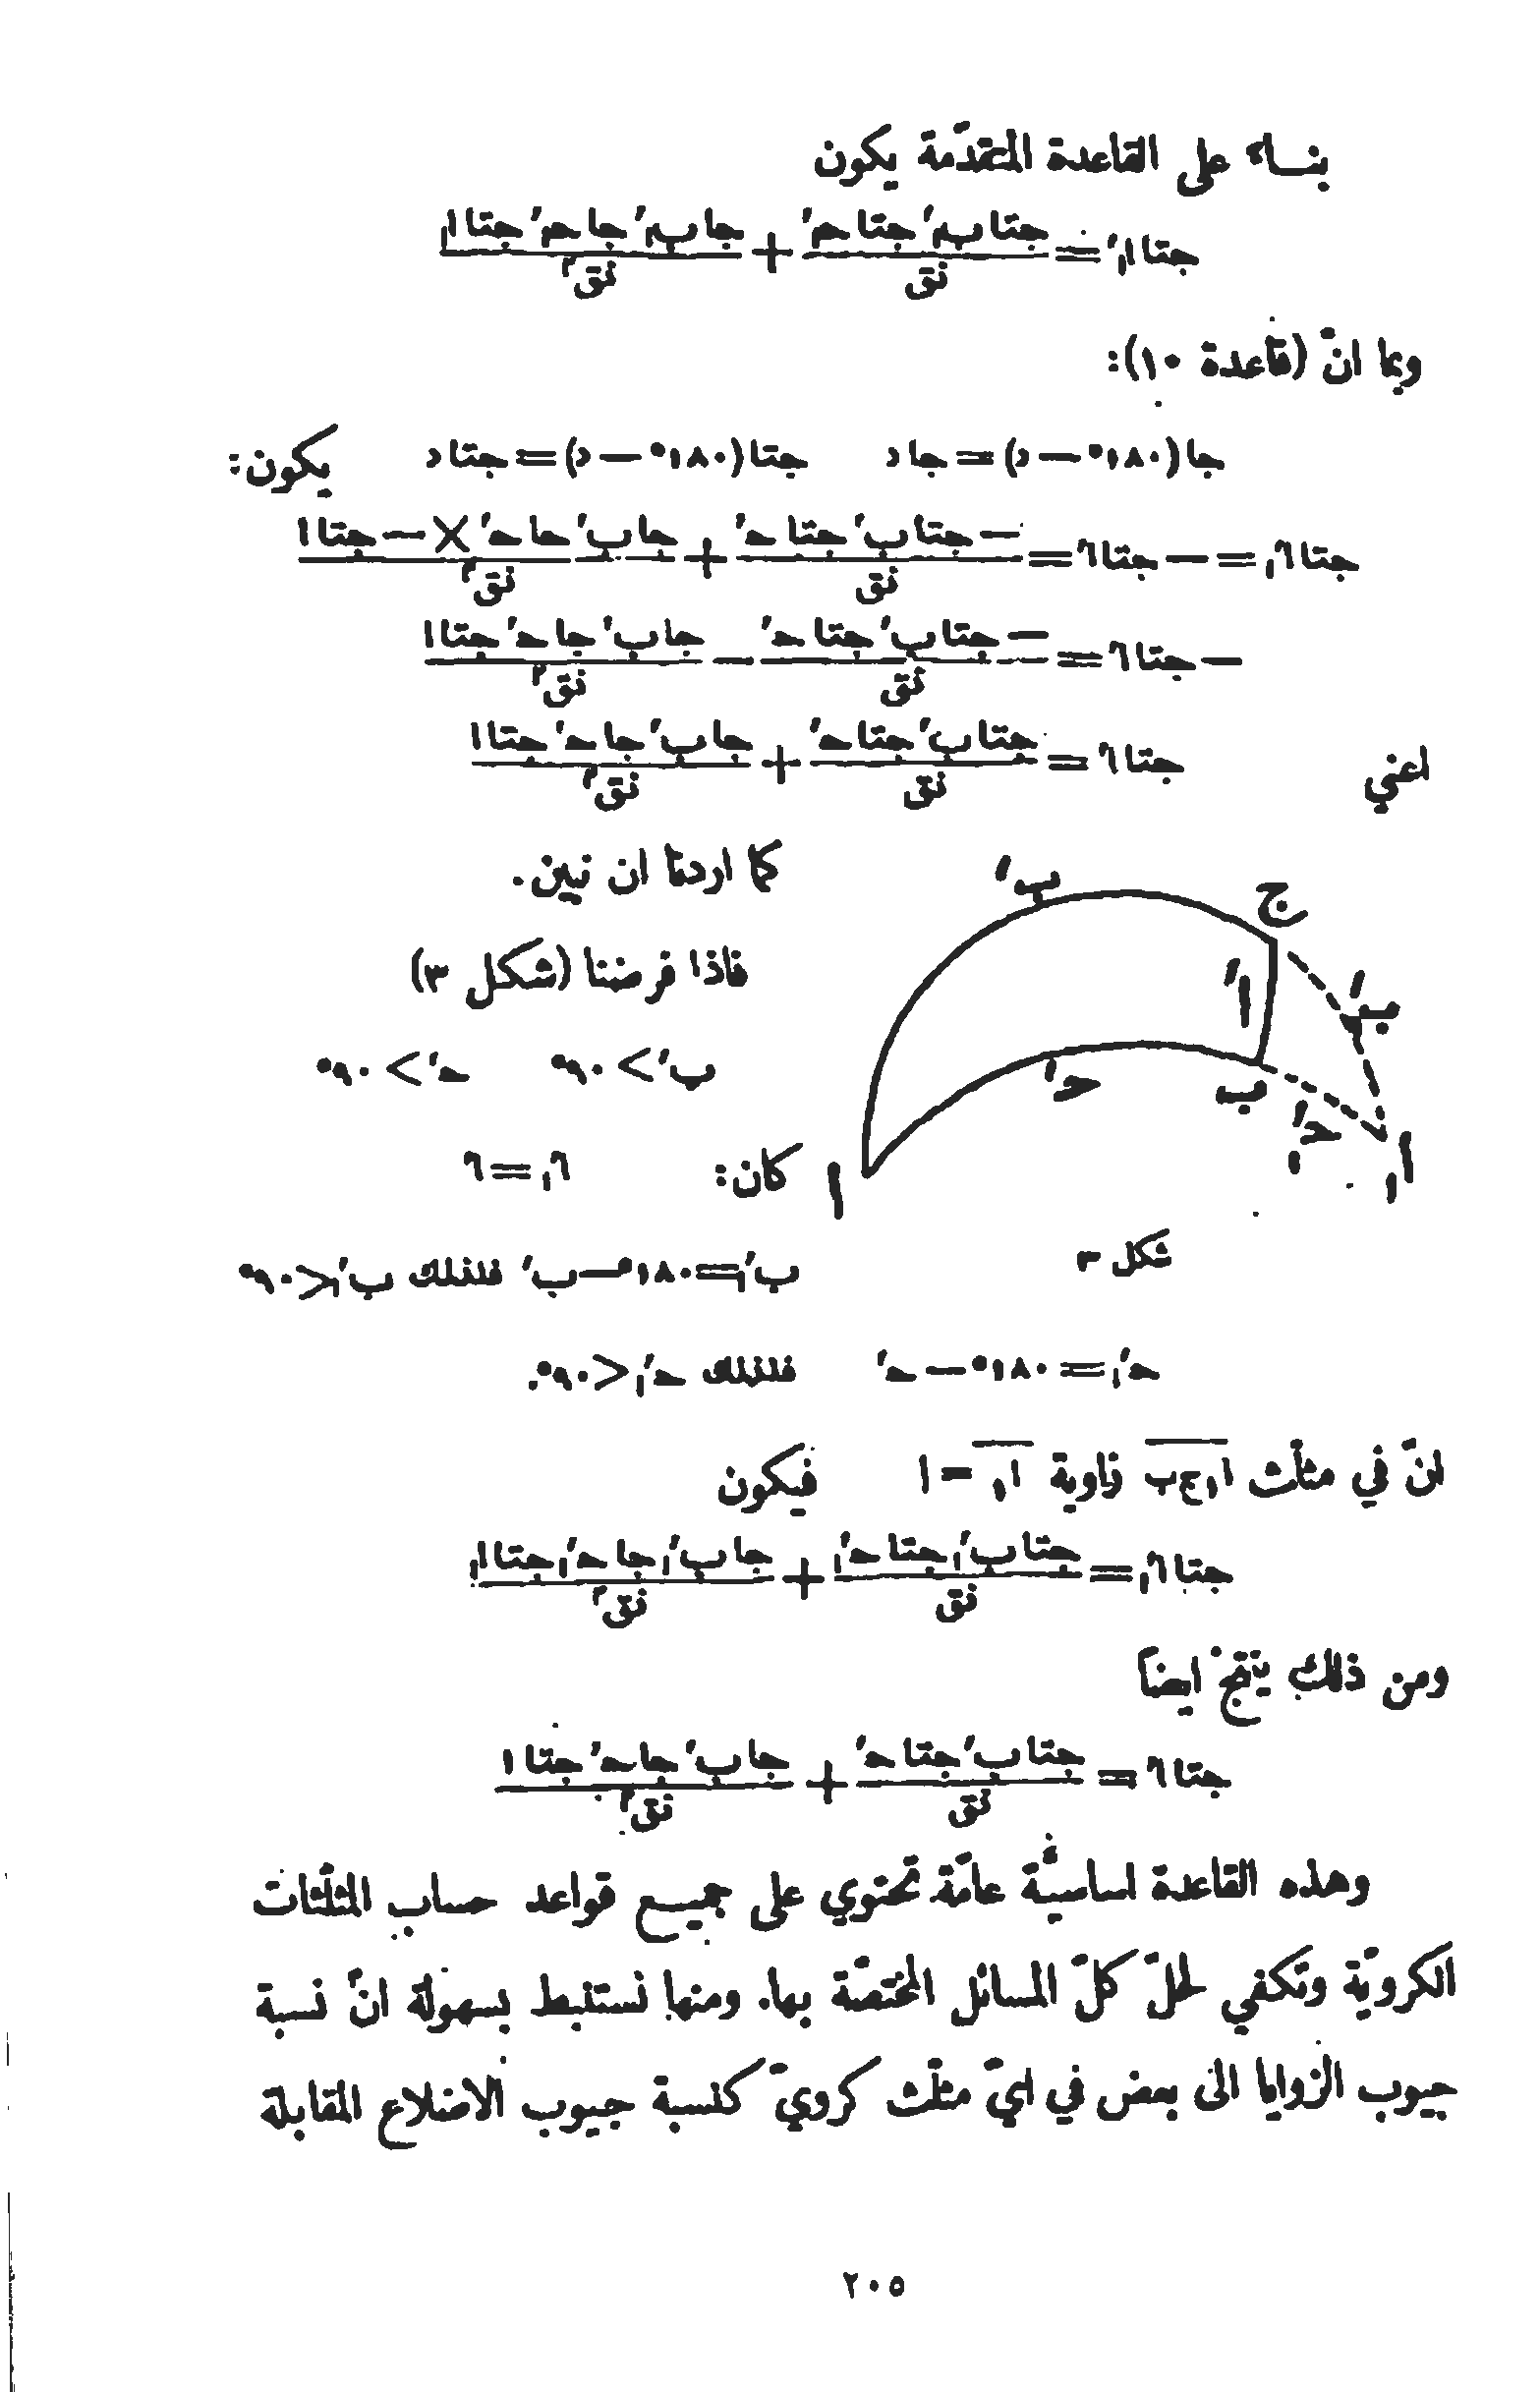 بنـاء على القاعدة المتقدّمة يكون
جتا ا٬′ = جتاب٬′ جتا حـ٬′ / نق + جاب٬′ جا حـ٬′ جتا ا٬ / نق٢
وبما انّ (قاعدة ١٠):
جا (١٨٠° — د) = جا د جتا (١٨٠° — د) = جتا د يكون:
جتا ا′٬ = — جتا ا′ = — جتاب′ جتا حـ′ / نق + جاب′ حا حـ′ × — جتا ا / نق٢
— جتا ا′ = — جتاب′ جتا حـ′ / نق — جاب′ جا حـ′ جتا ا / نق٢
اعني جتا ا′ = جتاب′ جتا حـ′ / نق + جاب′ جا حـ′ جتا ا / نق٢
كما اردنا ان نبين.
فاذا فرضنا (شكل ٣)
ب′ > ٩٠° حـ′ > ٩٠°
كان: ا′٬ = ا′
ب′ ج ب′٬ ا′ حـ′ ب حـ′٬ ا ا٬
شكل ٣
ب′٬ = ١٨٠° — ب′ فلذلك ب′٬ < ٩٠°
حـ′٬ = ١٨٠° — حـ′ فلذلك حـ′٬ < ٩٠°.
انّ في مثلّث ا٬ ج ب زاوية ا٬ = ا فيكون
جتا ا′٬ = جتاب′٬ جتا حـ′٬ / نق + جاب′٬ جا حـ′٬ جتا ا٬ / نق٢
ومن ذلك ينتج ايضاً
جتا ا′ = جتاب′ جتا حـ′ / نق + جاب′ جا حـ′ جتا ا / نق٢
وهذه القاعدة اساسيّة عامّة تحتوي على جميع قواعد حساب المثلّثات
الكرويّة وتكفي لحلّ كلّ المسائل المختصّة بها. ومنها نستنبط بسهولة انّ نسبة
جيوب الزوايا الى بعض في ايّ مثلّث كرويّ كنسبة جيوب الاضلاع المقابلة
٢٠٥